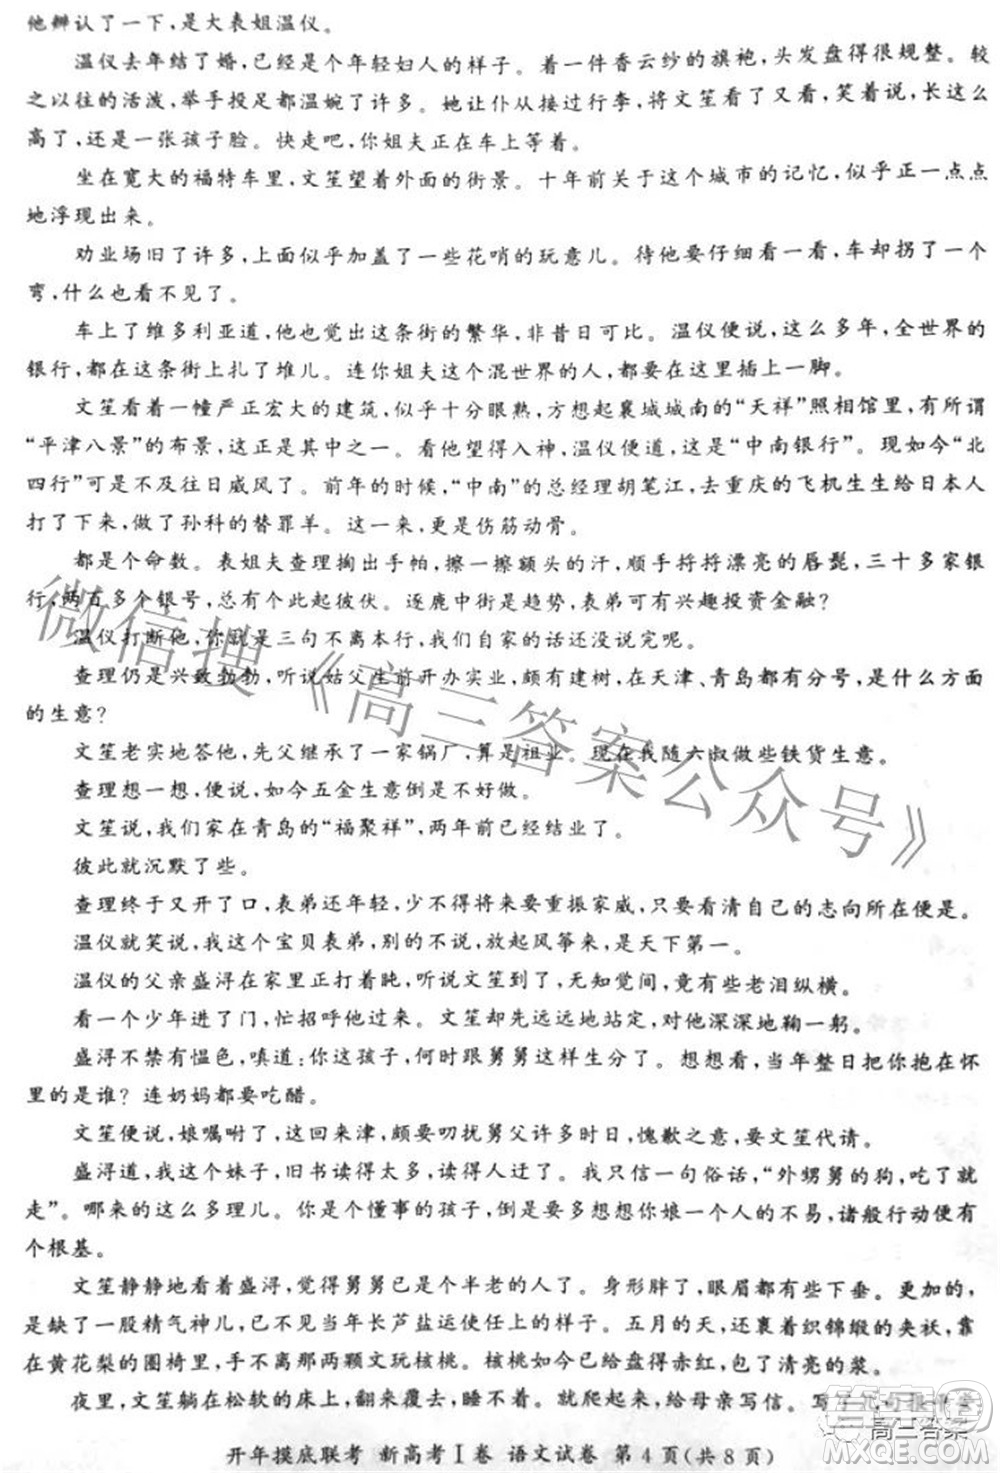 他辨认了一下，是大表姐温仪。
温仪去年结了婚，已经是个年轻妇人的样子。着一件香云纱的旗袍，头发盘得很规整。较
之以往的活泼，举手投足都温婉了许多。她让仆从接过行李，将文笙看了又看，笑着说，长这么
高了，还是一张孩子脸。快走吧，你姐夫正在车上等着。
坐在宽大的福特车里，文笙望着外面的街景。十年前关于这个城市的记忆，似乎正一点点
地浮现出来。
劝业场旧了许多，上面似乎加盖了一些花哨的玩意儿。待他要仔细看一看，车却拐了一个
弯，什么也看不见了。
车上了维多利亚道，他也觉出这条街的繁华，非昔日可比。温仪便说，这么多年，全世界的
银行，都在这条街上扎了堆儿。连你姐夫这个混世界的人，都要在这里插上一脚。
文笙看着一幢严正宏大的建筑，似乎十分眼熟，方想起襄城城南的“天祥”照相馆里，有所谓
“平津八景”的布景，这正是其中之一。看他望得入神，温仪便道，这是“中南银行”。现如今“北
四行”可是不及往日威风了。前年的时候，“中南”的总经理胡笔江，去重庆的飞机生生给日本人
打了下来，做了孙科的替罪羊。这一来，更是伤筋动骨。
都是个命数。表姐夫查理掏出手帕，擦一擦额头的汗，顺手捋捋漂亮的唇髭，三十多家银
行，两百多个银号，总有个此起彼伏。逐鹿中街是趋势，表弟可有兴趣投资金融？
温仪打断他，你就是三句不离本行，我们自家的话还没说完呢。
查理仍是兴致勃勃，听说姑父生前开办实业，颇有建树，在天津、青岛都有分号，是什么方面
的生意？
文笙老实地答他，先父继承了一家锅厂，算是祖业。现在我随六叔做些铁货生意。
查理想一想，便说，如今五金生意倒是不好做。
文笙说，我们家在青岛的“福聚祥”，两年前已经结业了。
彼此就沉默了些。
查理终于又开了口，表弟还年轻，少不得将来重振家威，只要看清自己的志向所在便是。
温仪就笑说，我这个宝贝表弟，别的不说，放起风筝来，是天下第一。
温仪的父亲盛浔在家里正打着盹，听说文笙到了，无知觉间，竟有些老泪纵横。
看一个少年进了门，忙招呼他过来。文笙却先远远地站定，对他深深地鞠一躬。
盛浔不禁有愠色，嗔道：你这孩子，何时跟舅舅这样生分了。想想看，当年整日把你抱在怀
里的是谁？连奶妈都要吃醋。
文笙便说，娘嘱咐了，这回来津，颇要叨扰舅父许多时日，愧歉之意，要文笙代请。
盛浔道，我这个妹子，旧书读得太多，读得人迂了。我只信一句俗话，“外甥舅的狗，吃了就
走”。哪来的这么多理儿。你是个懂事的孩子，倒是要多想想你娘一个人的不易，诸般行动便有
个根基。
文笙静静地看着盛浔，觉得舅舅已是个半老的人了。身形胖了，眼眉都有些下垂。更加的，
是缺了一股精气神儿，已不见当年长芦盐运使任上的样子。五月的天，还裹着织锦缎的夹袄，靠
在黄花梨的圈椅里，手不离那两颗文玩核桃。核桃如今已给盘得赤红，包了清亮的浆。
夜里，文笙躺在松软的床上，翻来覆去，睡不着。就爬起来，给母亲写信。写了几句
开年摸底联考 新高考Ⅰ卷 语文试卷 第4页(共8页)
微信搜《高三答案公众号》
高三答案
答案圈
MXQE.COM